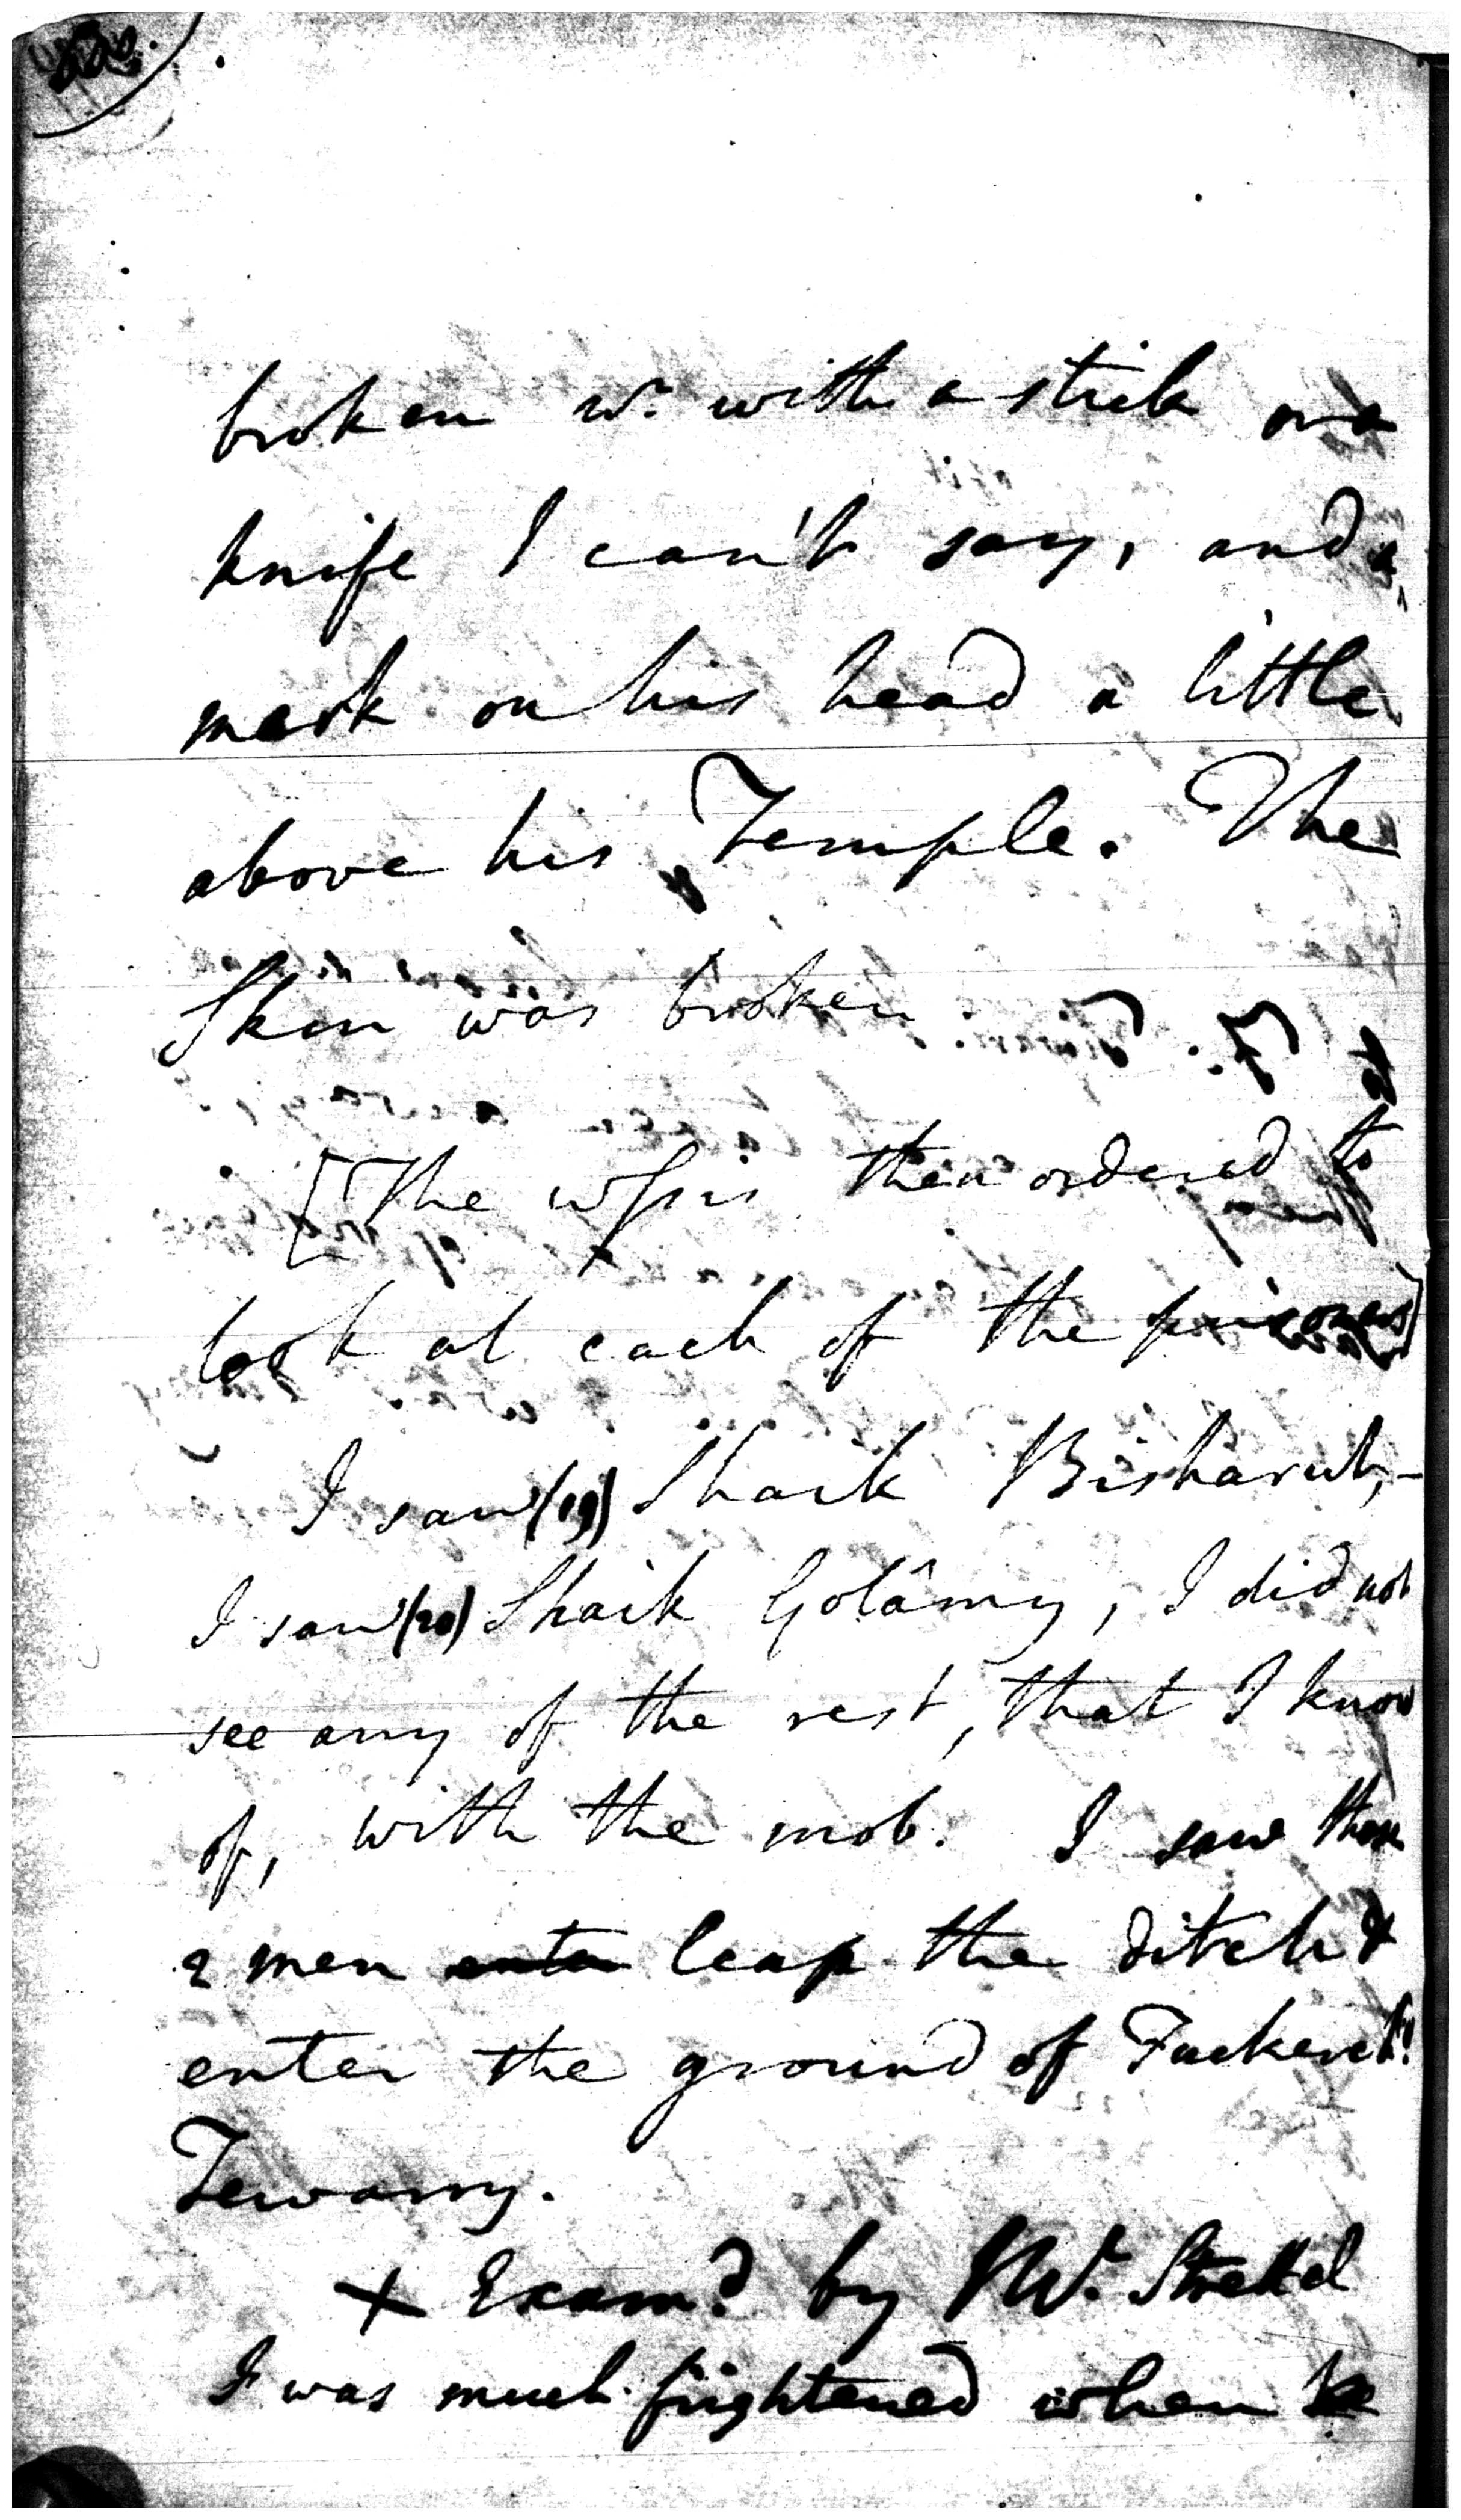 broken wr. with a stick or a
knife I can't say, and a
mark on his head a little
above his Temple. The
Skin was broken
[The wss is then ordered to
look at each of the prisoners]
I saw (19) Shaik Bisharut, -
I saw (20) Shaik Golâmy, I did not
see any of the rest, that I know
of, with the mob. I saw these
2 men enter leap the ditch &
enter the ground of
Tewarry.
X Examd. by Mr. Strettel
I was much frightened when